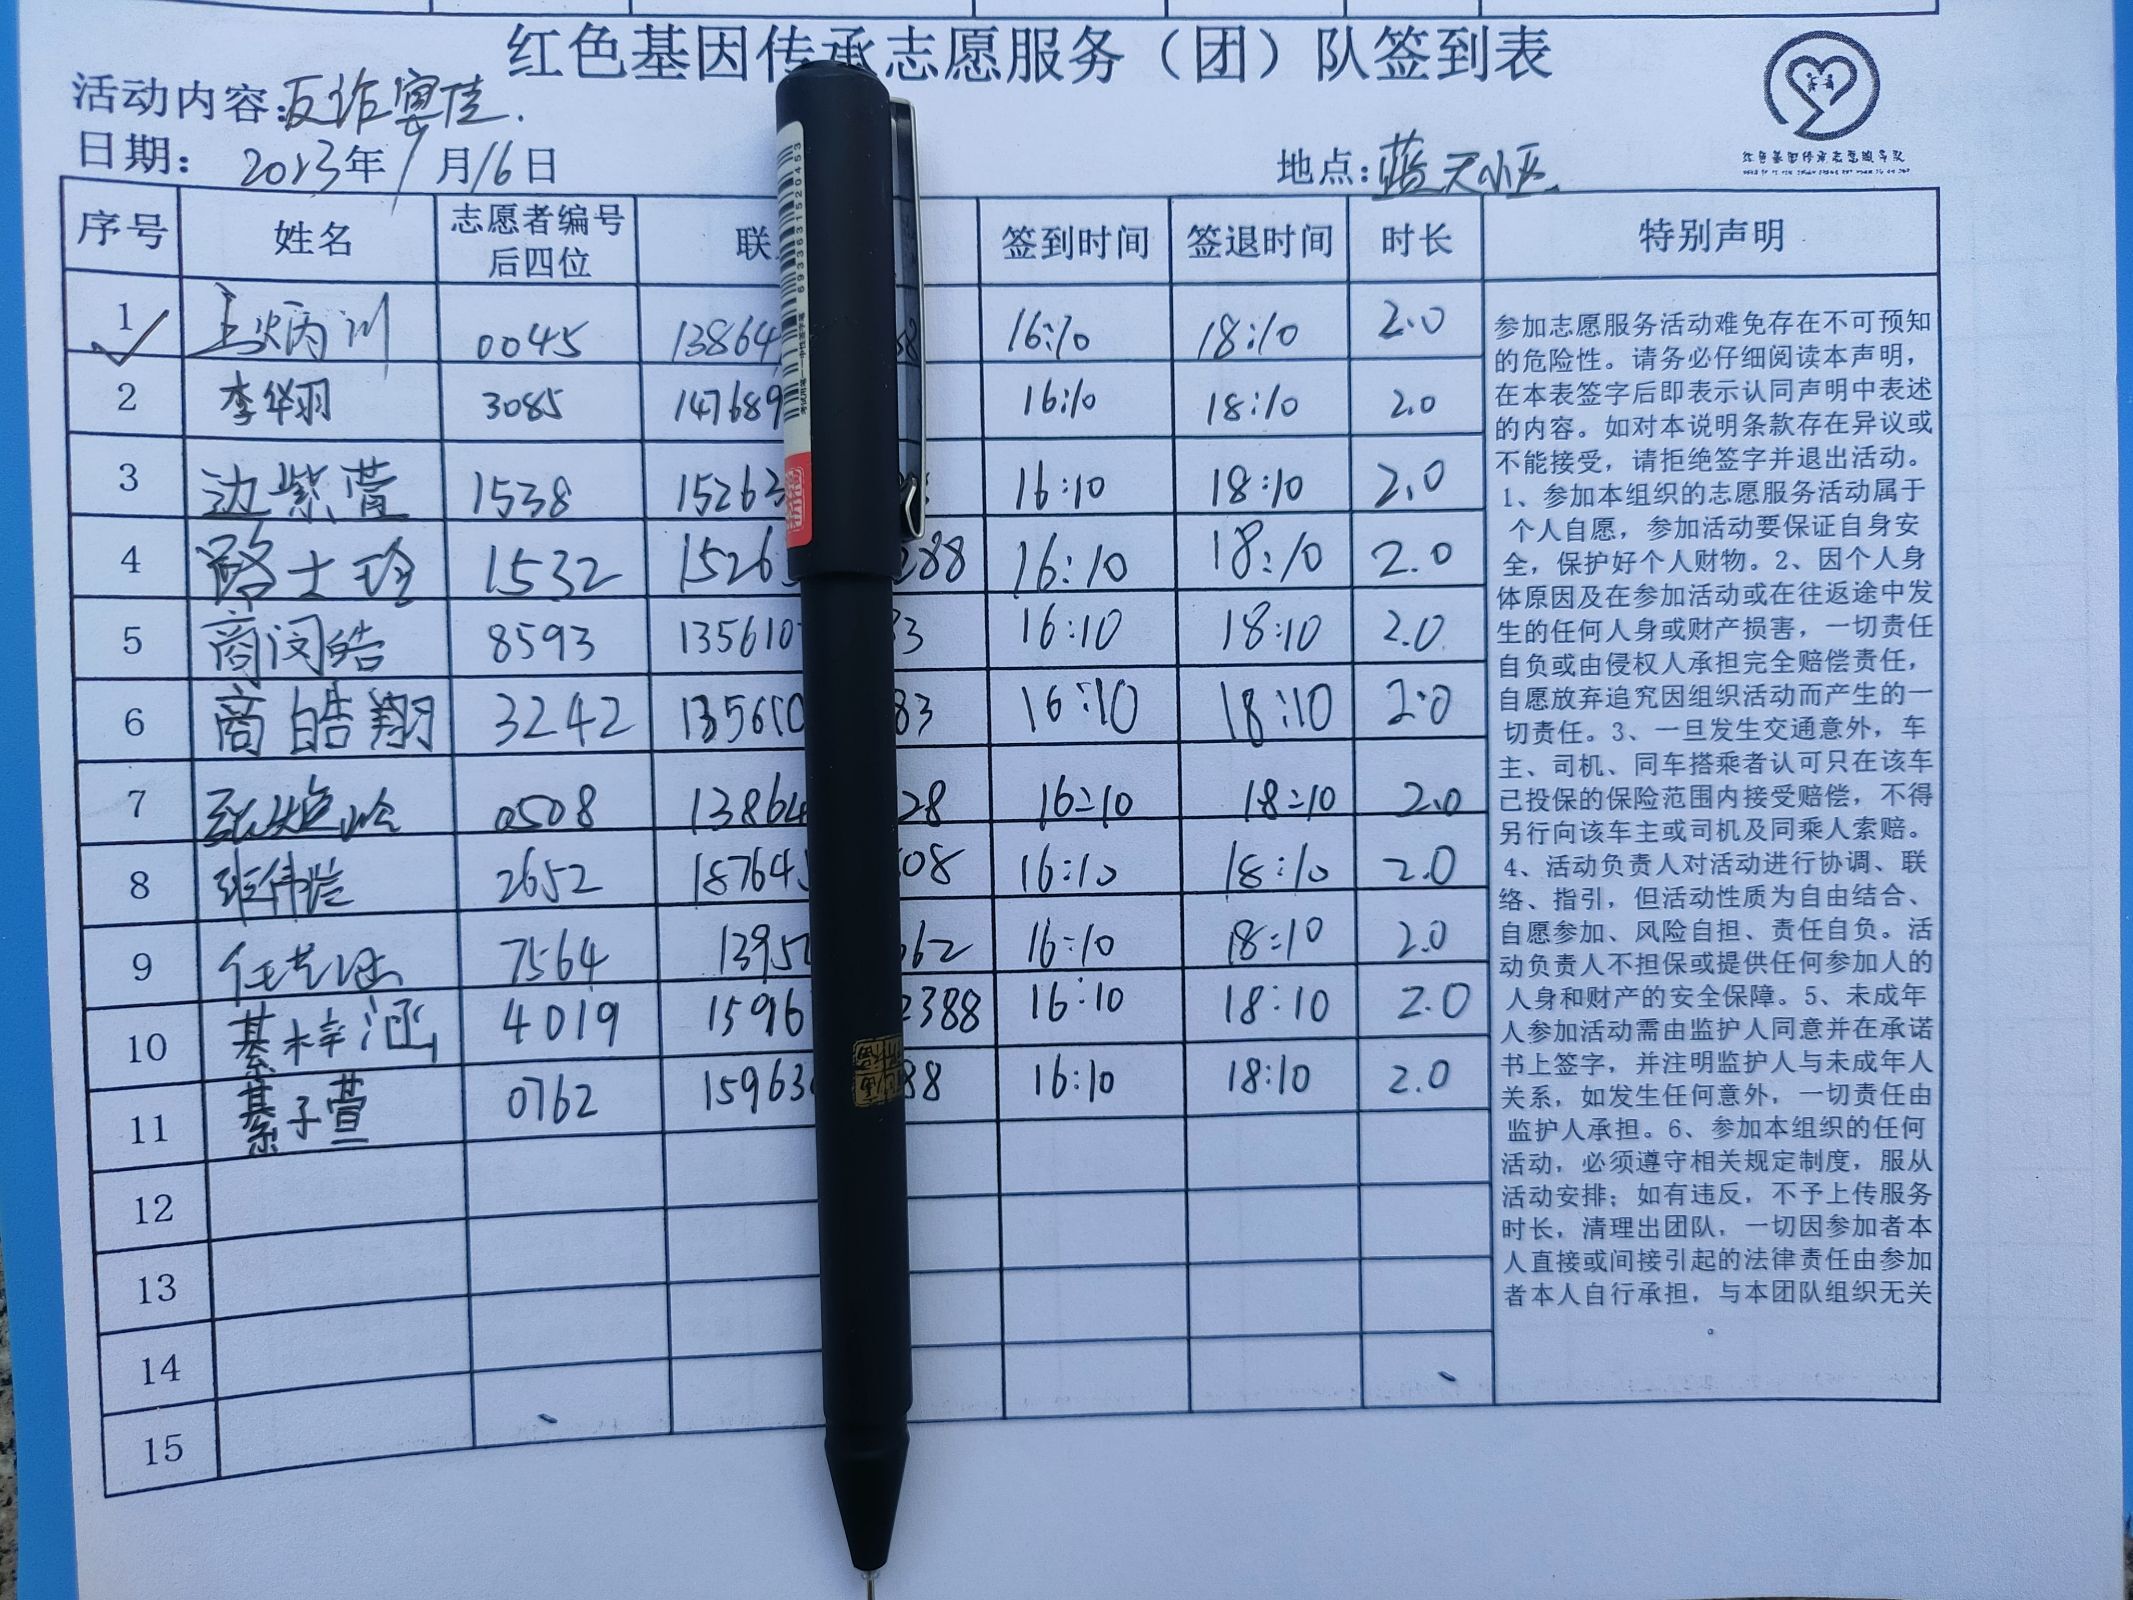 红色基因传承志愿服务（团）队签到表
活动内容：反诈宣传.
日期： 2023年9月16日 地点：蓝天小区
序号 姓名 志愿者编号后四位 联 签到时间 签退时间 时长 特别声明
1 0045 13864 16:10 18:10 2.0
2 李华羽 3085 147689 16:10 18:10 2.0
3 边紫萱 1538 15263 16:10 18:10 2.0
4 路士玲 1532 1526 288 16:10 18:10 2.0
5 商闵皓 8593 135610 83 16:10 18:10 2.0
6 商皓翔 3242 135610 83 16:10 18:10 2.0
7 0508 13864 28 16:10 18:10 2.0
8 2652 18764 08 16:10 18:10 2.0
9 7564 1395 662 16:10 18:10 2.0
10 綦梓涵 4019 1596 2388 16:10 18:10 2.0
11 綦子萱 0762 15963 88 16:10 18:10 2.0
12
13
14
15
参加志愿服务活动难免存在不可预知
的危险性。请务必仔细阅读本声明，
在本表签字后即表示认同声明中表述
的内容。如对本说明条款存在异议或
不能接受，请拒绝签字并退出活动。
1、参加本组织的志愿服务活动属于
个人自愿，参加活动要保证自身安
全，保护好个人财物。2、因个人身
体原因及在参加活动或在往返途中发
生的任何人身或财产损害，一切责任
自负或由侵权人承担完全赔偿责任，
自愿放弃追究因组织活动而产生的一
切责任。3、一旦发生交通意外，车
主、司机、同车搭乘者认可只在该车
已投保的保险范围内接受赔偿，不得
另行向该车主或司机及同乘人索赔。
4、活动负责人对活动进行协调、联
络、指引，但活动性质为自由结合、
自愿参加、风险自担、责任自负。活
动负责人不担保或提供任何参加人的
人身和财产的安全保障。5、未成年
人参加活动需由监护人同意并在承诺
书上签字，并注明监护人与未成年人
关系，如发生任何意外，一切责任由
监护人承担。6、参加本组织的任何
活动，必须遵守相关规定制度，服从
活动安排；如有违反，不予上传服务
时长，清理出团队，一切因参加者本
人直接或间接引起的法律责任由参加
者本人自行承担，与本团队组织无关
。
红色基因传承志愿服务队
6933631520453
考试用笔——中性签字笔